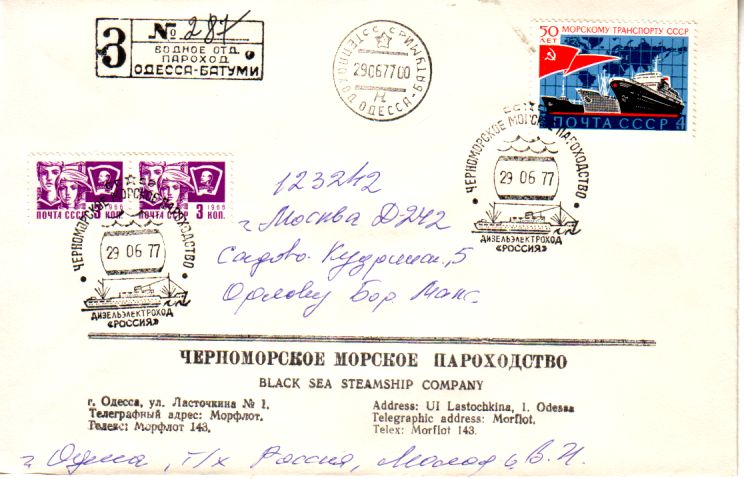 З № 287
ВОДНОЕ ОТД.
ПАРОХОД
ОДЕССА-БАТУМИ
ТЕПЛОХОД ОДЕССА-БАТУМИ СССР
29067700
50 ЛЕТ МОРСКОМУ ТРАНСПОРТУ СССР
ПОЧТА СССР 4
ЧЕРНОМОРСКОЕ МОРСКОЕ ПАРОХОДСТВО
29 06 77
ДИЗЕЛЬЭЛЕКТРОХОД
«РОССИЯ»
ПОЧТА СССР 3 КОП.
1966
ПОЧТА СССР 3 КОП.
1966
ЧЕРНОМОРСКОЕ МОРСКОЕ ПАРОХОДСТВО
29 06 77
ДИЗЕЛЬЭЛЕКТРОХОД
«РОССИЯ»
123242
г. Москва Д-242
Садово. Кудринск., 5
Орлову Бор. Макс.
ЧЕРНОМОРСКОЕ МОРСКОЕ ПАРОХОДСТВО
BLACK SEA STEAMSHIP COMPANY
г. Одесса, ул. Ласточкина № 1.
Телеграфный адрес: Морфлот.
Телекс: Морфлот 143.
Address: Ul Lastochkina, 1. Odessa
Telegraphic address: Morflot.
Telex: Morflot 143.
г. Одесса, т/х Россия, В. И.